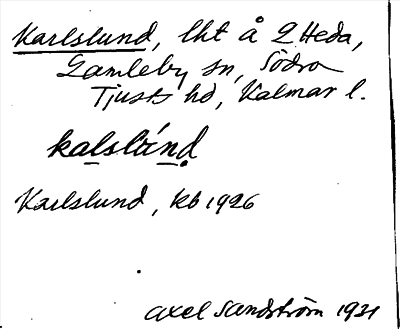 Karlslund, lht å 2 Heda,
Gamleby sn, Södra
Tjusts hd, Kalmar l.
Karlslund, kb 1926
Axel Sandström 1931